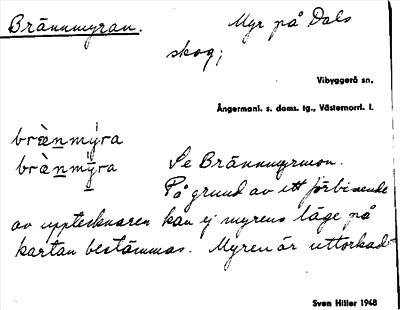 Brännmyran.
Myr på Dals
skog;
Vibyggerå sn.
Ångermanl. s. doms. tg., Västernorrl. l.
brànmýra
brànmÿra
Se Brännmyrmon.
På grund av ett förbiseende
av upptecknaren kan ej myrens läge på
kartan bestämmas. Myren är uttorkad
Sven Hiller 1948